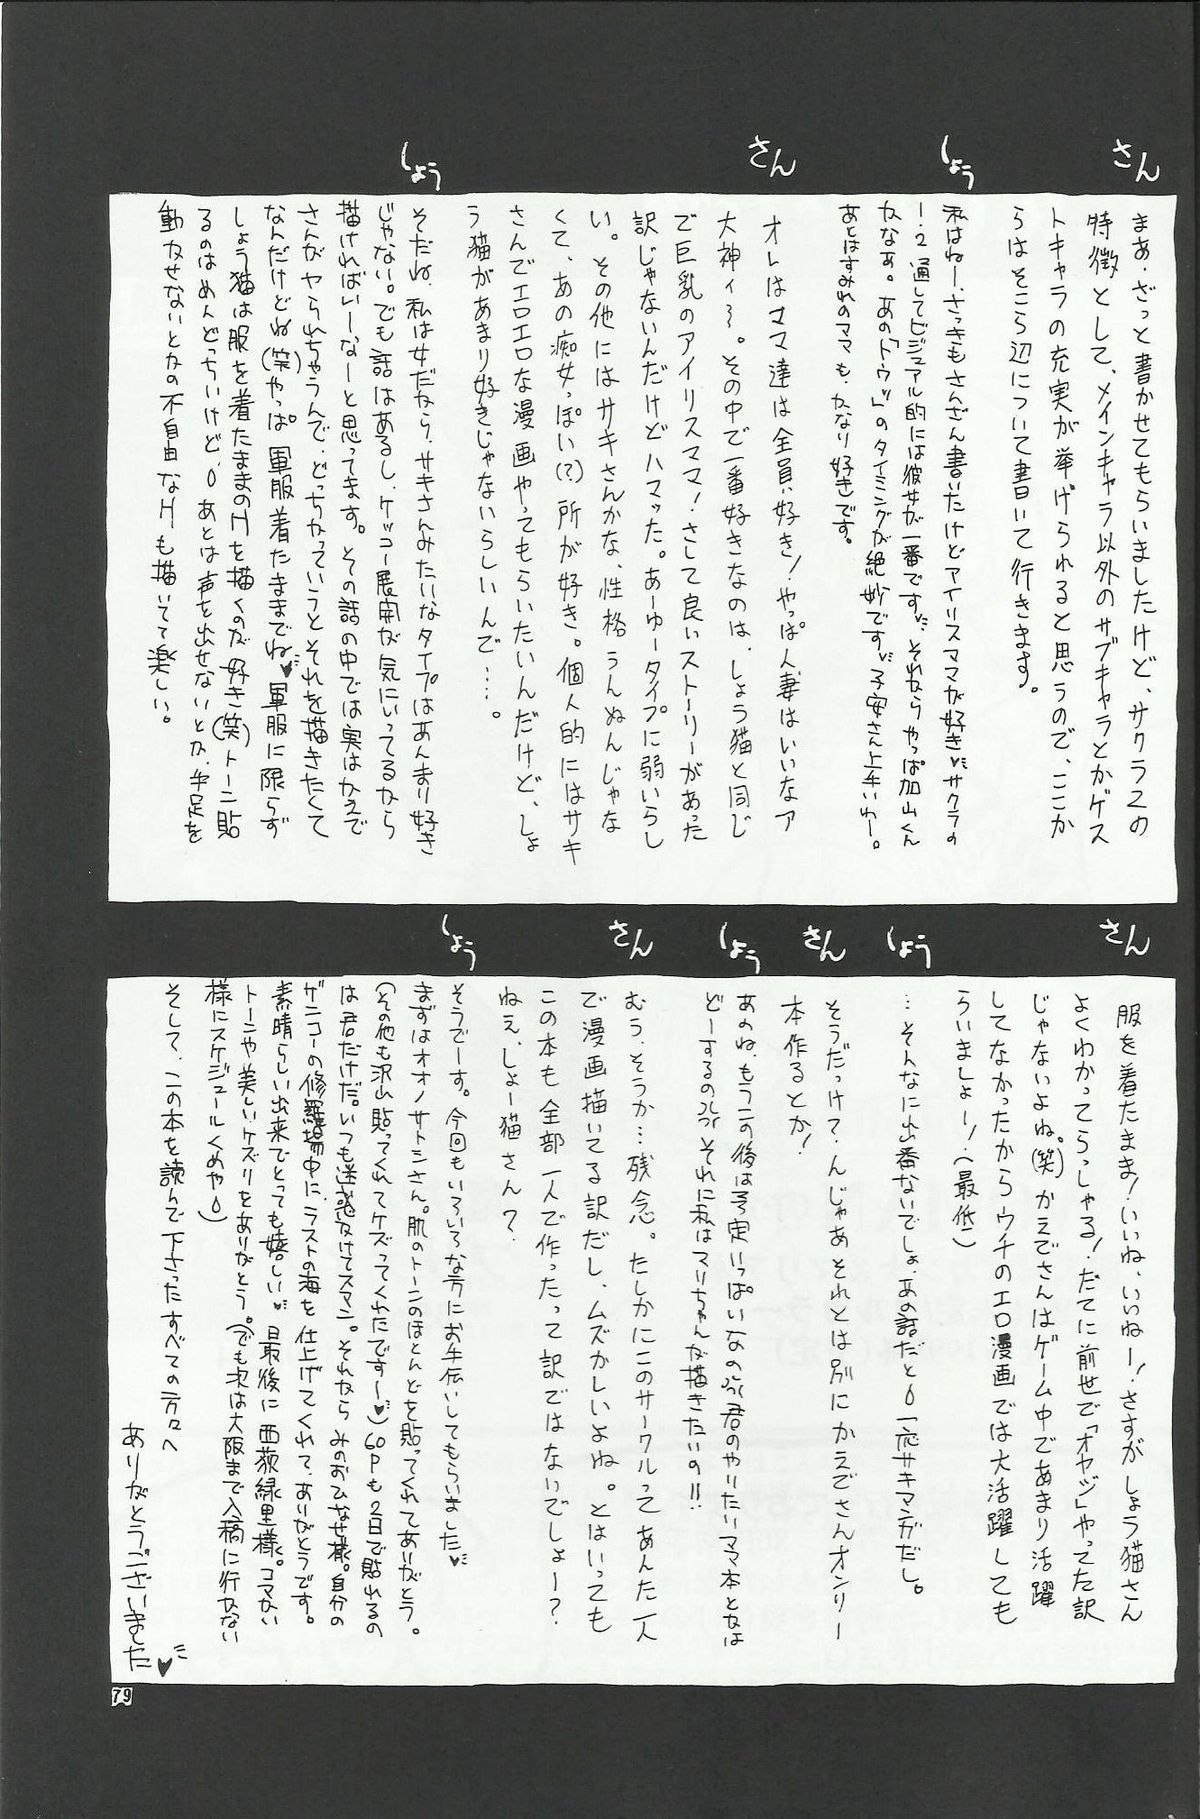 さん
まあ、ざっと書かせてもらいましたけど、サクラ2の
特徴として、メインキャラ以外のサブキャラとかゲス
トキャラの充実が挙げられると思うので、ここか
らはそこら辺について書いて行きます。
しょう
私はねー、さっきもさんざん書いたけどアイリスママが好き♥サクラの
1・2通してビジュアル的には彼女が一番です♥それならやっぱ加山くん
かなあ。あの「トウッ」のタイミングが絶妙です♥子安さん上手いわー。
あとはすみれのママも、かなり好きです。
さん
オレはママ達は全員好き!やっぱ人妻はいいなァ
大神ィ〜。その中で一番好きなのは、しょう猫と同じ
で巨乳のアイリスママ!さして良いストーリーがあった
訳じゃないんだけどハマった。あーゆータイプに弱いらし
い。その他にはサキさんかな、性格うんぬんじゃな
くて、あの痴女っぽい(?)所が好き。個人的にはサキ
さんでエロエロな漫画やってもらいたいんだけど、しょ
う猫があまり好きじゃないらしいんで…。
しょう
そだね、私は女だから、サキさんみたいなタイプはあんまり好き
じゃない。でも話はあるし、ケッコー展開が気にいってるなら
描ければいーなーと思ってます。その話の中では実はかえで
さんがヤられちゃうんで、どっちかっていうとそれを描きたくて
なんだけどね(笑)やっぱ軍服着たままでね♥軍服に限らず
しょう猫は服を着たままのHを描くのが好き(笑)トーン貼
るのはめんどっちいけど、あとは声を出せないとか、手足を
動かせないとかの不自由なHも描いてて楽しい。
さん
服を着たまま!いいね、いいねー!さすがしょう猫さん
よくわかってらっしゃる!だてに前世で「オヤジ」やってた訳
じゃないよね。(笑)かえでさんはゲーム中であまり活躍
してなかったからウチのエロ漫画では大活躍しても
らいましょー!(最低)
しょう
…そんなに出番ないでしょ、あの話だと 一応サキマンガだし。
さん
そうだっけ?んじゃあそれとは別にかえでさんオンリー
本作るとか!
しょう
あのね、もうこの後は予定いっぱいなの 君のやりたいママ本とかは
どーするの それに私はマリちゃんが描きたいの!!
さん
むう、そうか…残念。たしかにこのサークルってあんた一人
で漫画描いてる訳だし、ムズかしいよね。とはいっても
この本も全部一人で作ったって訳ではないでしょー?
ねえ、しょー猫さん?
しょう
そうでーす。今回もいろいろな方にお手伝いしてもらいました♥
まずはオオノサトシさん。肌のトーンのほとんどを貼ってくれてありがとう。
(その他も沢山貼ってくれてケズってくれたですー♥)60Pも2日で貼れるの
は君だけだ。いつも迷惑かけてスマン。それからみのおひなせ様。自分の
ザンコーの修羅場中に、ラストの海を仕上げてくれて、ありがとうです。
素晴らしい出来でとっても嬉しい♥最後に西荻緑里様。コマかい
トーンや美しいケズリをありがとう。(でも次は大阪まで入稿に行かない
様にスケジュールくめや)
そして、この本を読んで下さったすべての方々へ
ありがとうございました♥
79